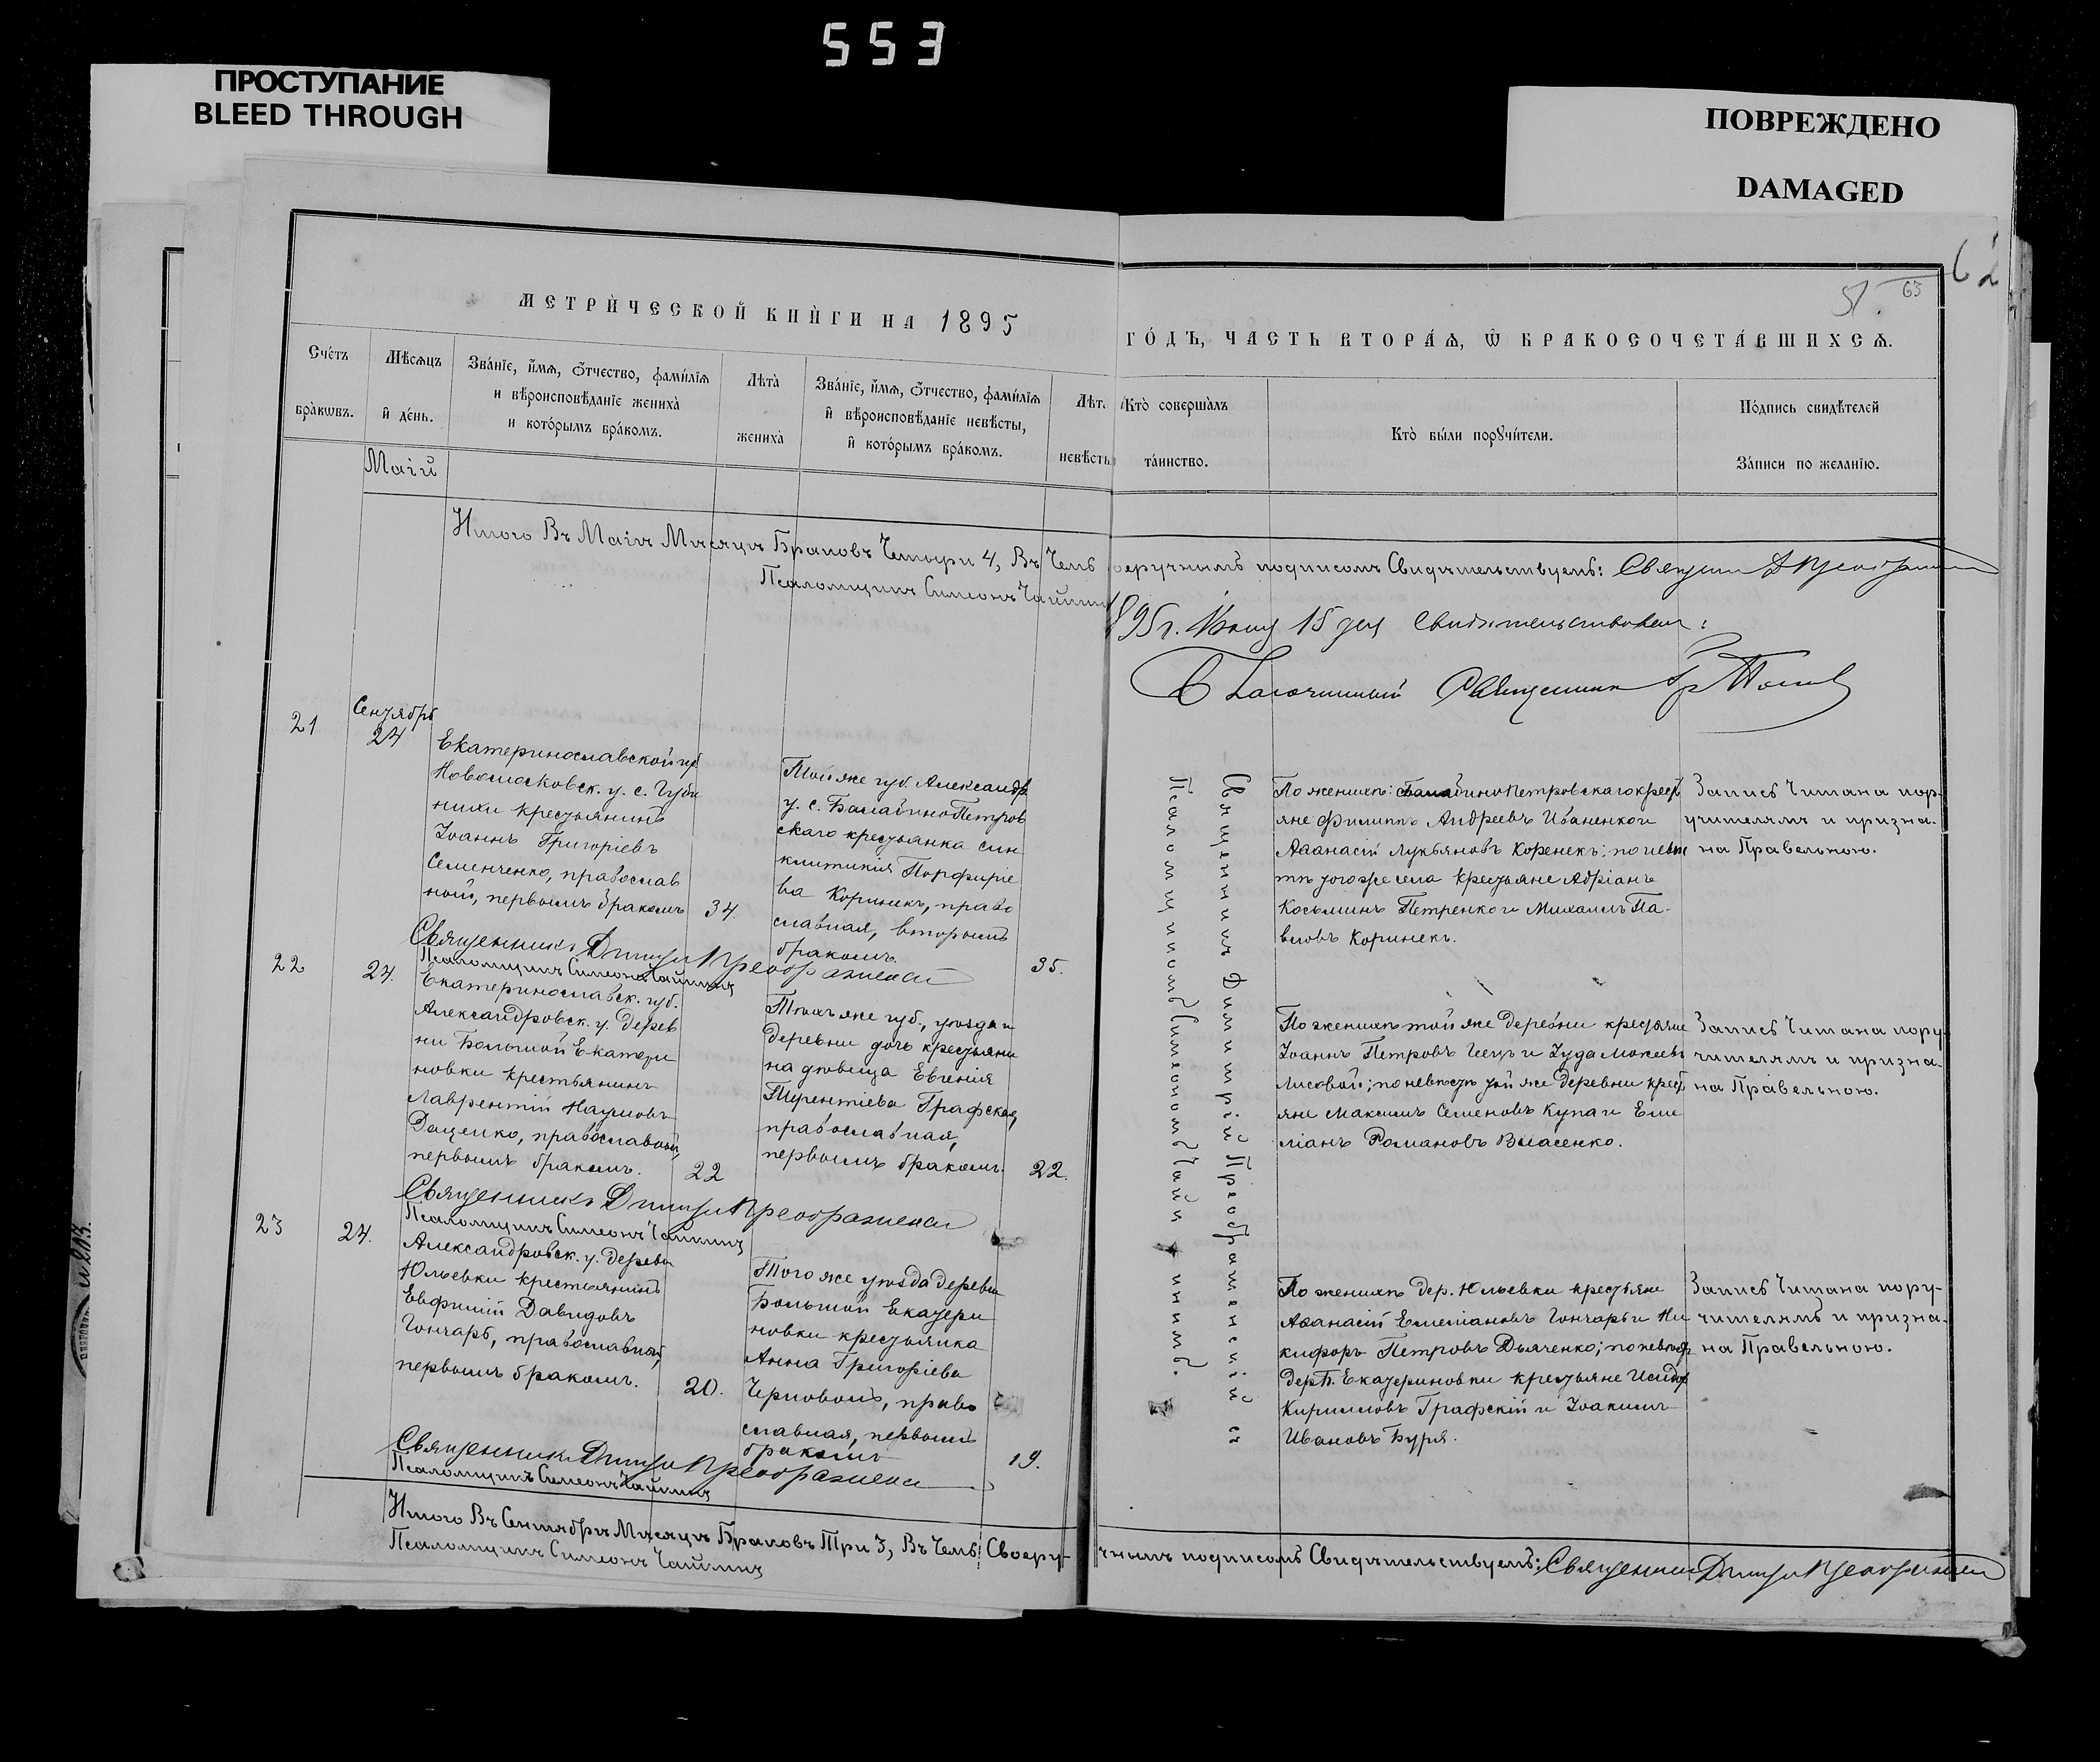 553
ПРОСТУПАНИЕ
BLEED THROUGH
ПОВРЕЖДЕНО
DAMAGED
62
51. 63
МЕТРИ́ЧЕСКОЙ КНИ́ГИ НА 1895
ГО́ДЪ, ЧАСТЬ ВТОРА́Ѧ, Ѡ БРАКОСОЧЕТА́ВШИХСѦ.
Сче́тъ
бра́кѡвъ.
Мѣ́сѧцъ
и де́нь.
Зва́нїе, и҆́мѧ, ѻ҆́тчество, фами́лїѧ
и вѣроисповѣ́данїе жениха̀
и кото́рымъ бра́комъ.
Лѣта̀
жениха̀
Зва́нїе, и҆́мѧ, ѻ҆́тчество, фами́лїѧ
и҆ вѣроисповѣ́данїе невѣ́сты,
и҆ кото́рымъ бра́комъ.
Лѣта
невѣсты
Кто̀ соверша́лъ
та́инство.
Кто̀ бы́ли порꙋчи́тели.
По́дпись свидѣ́телей
За́писи по жела́нїю.
Маій
Итого Въ Маіѣ Мѣсяцѣ Браковъ Четыри 4, Въ Чемъ
оеручнымъ подписомъ Свидѣтельствуемъ: Священ
Псаломщикъ Симеонъ
895 г. 15 дня Свидѣтельствовалъ:
Благочинный Священникъ Гр Попов
21
Сентябрь
24
Екатеринославской губ
Новомосковск. у. с. Губи
нихи крестьянинъ
Іоаннъ Григоріевъ
Семенченко, православ
ной, первымъ бракомъ
34.
Той же губ. Александр
у. с. БалабиноПетров
скаго крестьянка Син
клитикія Порфиріе
ва Коринекъ, право
славная, вторымъ
бракомъ.
35.
Священникъ Дмитрій Преображенскій
Псаломщикъ Симеонъ
Священникъ Димитрій Преображенскій съ
Псаломщикомъ Симеономъ
По женихѣ: БалабиноПетровскаго крест
яне Филиппъ Андреевъ Иваненко и
Аѳанасій Лукьяновъ Коренекъ; по невѣс
тѣ тогоже села крестьяне Адріанъ
Косьминъ Петренко и Михаилъ Па-
вловъ Коринекъ.
Запись Читана пор-
учителямъ и призна-
на Правельною.
22
24.
Екатеринославск. губ.
Александровск. у. Дерев
ни Большой Екатери
новки крестьянинъ
Лаврентій Наумовъ
Даценко, православный,
первымъ бракомъ.
22
Тѣхъ же губ., уѣзда и
деревни дочь крестьяни
на дѣвица Евгенія
Терентіева Графская,
православная,
первымъ бракомъ.
22.
Священникъ Дмитрій Преображенскій
Псаломщикъ Симеонъ
По женихѣ той же деревни крестьяне
Іоаннъ Петровъ и Іуда Мокеевъ
Лисовой; по невѣстѣ той же деревни крест
яне Максимъ Семеновъ Купа и Еме
ліанъ Романовъ Власенко.
Запись Читана пору-
чителямъ и призна-
на Правельною.
23
24.
Александровск. у. Деревни
Юльевки крестьянинъ
Евфимій Давидовъ
Гончаръ, православный,
первымъ бракомъ.
20.
Того же уѣзда деревни
Большой Екатери
новки крестьянка
Анна Григоріева
Черновол, право
славная, первымъ
бракомъ
19.
Священникъ Дмитрій Преображенскій
Псаломщикъ Симеонъ
По женихѣ дер. Юльевки крестьяне
Аѳанасій Емеліановъ Гончаръ и Ни
кифоръ Петровъ Дьяченко; по невѣстѣ
дер Б. Екатериновки крестьяне Исидор
Кирилловъ Графскій и Іоакимъ
Ивановъ Буря.
Запись Читана пору-
чителямъ и призна-
на Правельною.
Итого Въ Сентябрѣ Мѣсяцѣ Браковъ Три 3, Въ Чемъ Своеру-
чнымъ подписомъ Свидѣтельствуемъ: Священникъ Дмитрій Преображенскій
Псаломщикъ Симеонъ